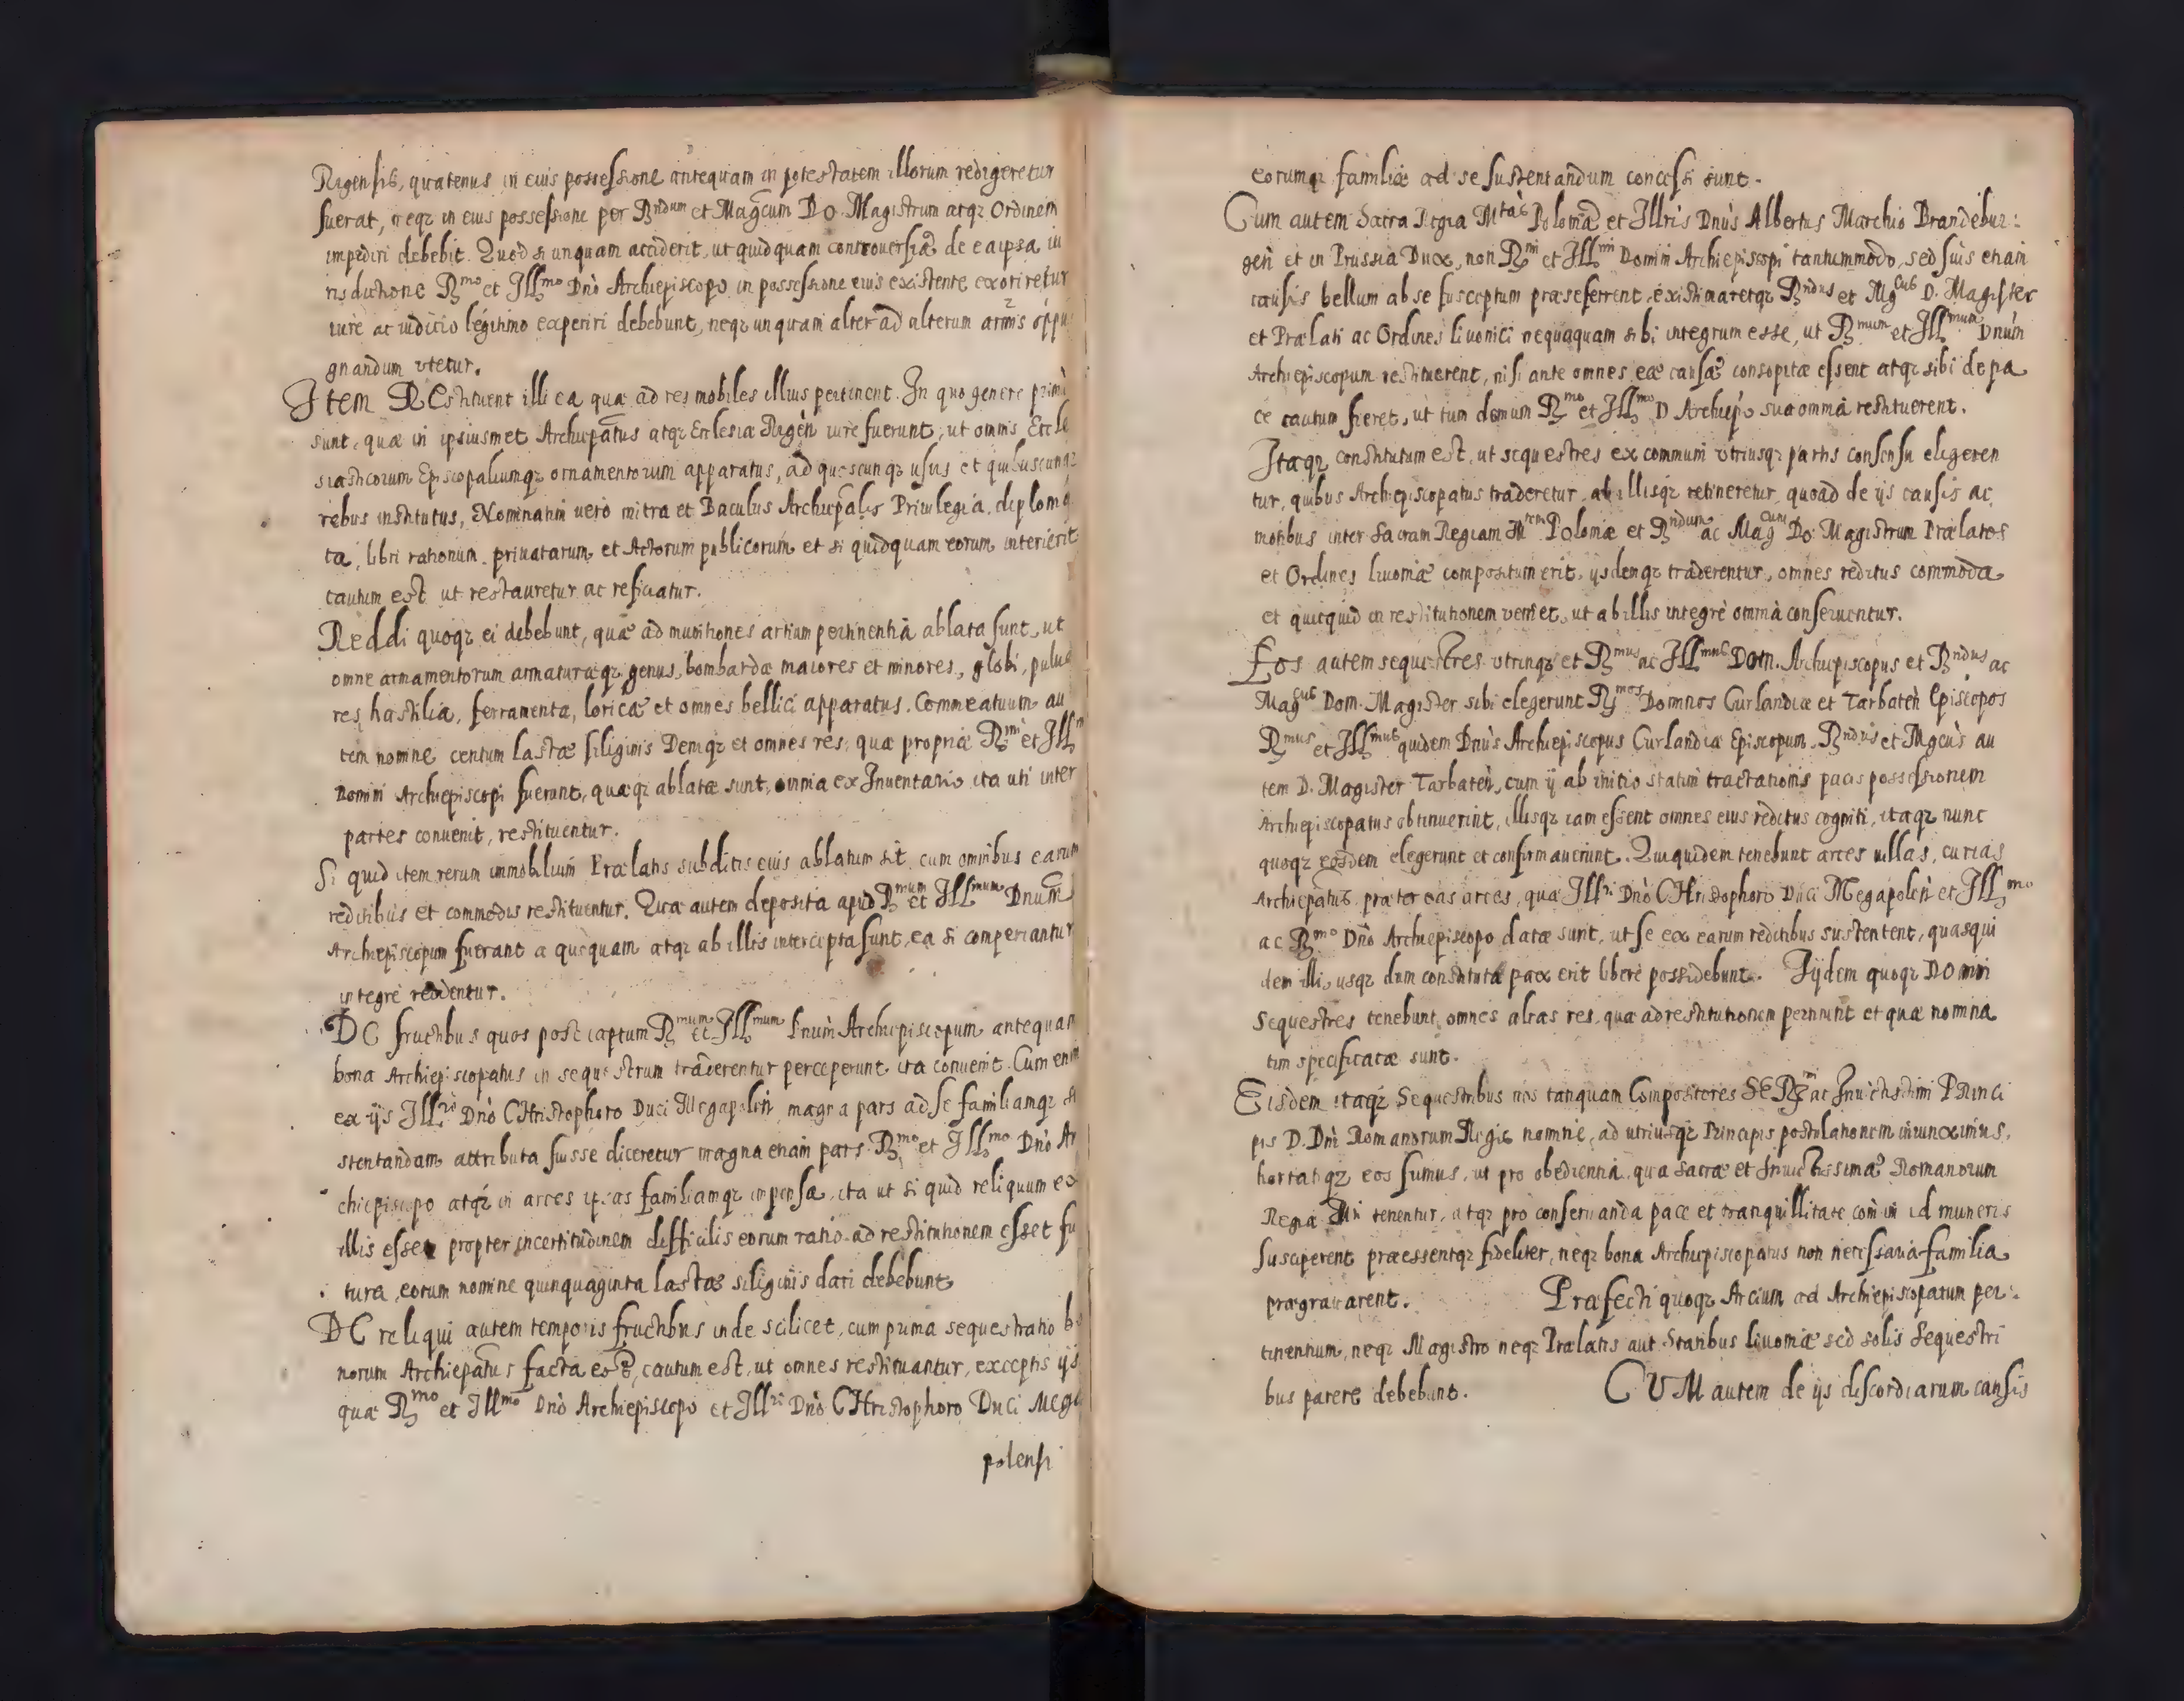 Rigensis, quatenus in eius possessione antequam in potestatem illorum redigeretur
fuerat, neqz in eius possessione per Rndum et Magcum Do. Magistrum atqz Ordinem
impediri debebit. Quod si unquam acciderit, ut quidquam controuersiæ de ea ipsa iu
risdictione Rmo et Illmo Dno Archiepiscopo in possessione eius existente exoriretur
iure ac iudicio legitimo experiri debebunt, neqz unquam alter ad alterum armis oppu
gnandum vtetur.
Item REstituent illi ea quæ ad res mobiles illius pertinent. In quo genere primi
sunt, quæ in ipsiusmet Archiepatus atqz Ecclesiæ Rigen iure fuerunt, ut omnis Eccle
siasticorum Episcopaliumqz ornamentorum apparatus, ad quoscunqz usus et quibuscunqz
rebus institutus, Nominatim uero mitra et Baculus Archiepalis Priuilegia, diploma
ta, libri rationum priuatarum et Actorum publicorum et si quidquam eorum interierit
cautum est ut restauretur ac reficiatur.
Reddi quoqz ei debebunt, quæ ad munitiones artium pertinentia ablata sunt, ut
omne armamentorum armaturæqz genus, bombardæ maiores et minores, globi, pulue
res, hastilia, ferramenta, loricæ et omnes bellici apparatus. Commeatuum au
tem nomine centum lastæ siliginis Deniqz et omnes res, quæ propriæ Rmi et Illmi
Domini Archiepiscopi fuerunt, quæqz ablatæ sunt, omnia ex Inuentario ita uti inter
partes conuenit, restituentur.
Si quid item rerum immobilium Prælatis subditis eius ablatum sit cum omnibus earum
reditibus et commodis restituentur. Quæ autem deposita apud Rmum et Illmum Dnum
Archiepiscopum fuerant a quoquam atqz ab illis intercepta sunt, ea si comperiantur
integre reddentur.
DE fructibus quos post captum Rmum et Illmum Dnum Archiepiscopum antequam
bona Archiepiscopatus in sequestrum traderentur perceperunt ita conuenit. Cum enim
ex ijs Illri Dno CHristophoro Duci Megapolen magna pars ad se familiamqz su
stentandam attributa fuisse diceretur magna etiam pars Rmo et Illmo Dno Ar
chiepiscopo atqz in arces ipsas familiamqz impensa, ita ut si quid reliquum ex
illis esset propter incertitudinem difficilis eorum ratio ad restitutionem esset fu
tura, eorum nomine quinquaginta lastæ siliginis dari debebunt
DE reliqui autem temporis fructibus inde scilicet, cum prima sequestratio bo
norum Archiepatus facta est, cautum est, ut omnes restituantur, exceptis ijs
quæ Rmo et Illmo Dno Archiepiscopo et Illri Dno CHristophoro Duci Mega
polensi
eorumqz familiæ ad se sustentandum concessi sunt.
Cum autem Sacra Regia Mtas Poloniæ et Illris Dnus Albertus Marchio Brandebur:
gen et in Prussia Dux, non Rmi et Illmi Domini Archiepiscopi tantummodo, sed suis etiam
causis bellum ab se susceptum præseferrent, existimaretqz Rndus et Mgcus D. Magister
et Prælati ac Ordines liuonici nequaquam sibi integrum esse, ut Rmum et Illmum Dnum
Archiepiscopum restituerent, nisi ante omnes eæ causæ consopitæ essent atqz sibi de pa
ce cautum fieret, ut tum demum Rmo et Illmo D Archiepo sua omnia restituerent.
Itaqz constitutum est, ut sequestres ex communi vtriusqz partis consensu eligeren
tur, quibus Archiepiscopatus traderetur, ab illisqz retineretur, quoad de ijs causis ac
motibus inter Sacram Regiam Mtem Poloniæ et Rndum ac Magcum Do: Magistrum Prælatos
et Ordines liuoniæ compositum erit, ijsdemqz traderentur, omnes reditus commoda
et quicquid in restitutionem veniet, ut ab illis integrè omnia conseruentur.
Eos autem sequestres vtrinqz et Rmus ac Illmus Dom. Archiepiscopus et Rndus ac
Magcus Dom. Magister sibi elegerunt Rmos Dominos Curlandiæ et Tarbaten Episcopos
Rmus et Illmus quidem Dnus Archiepiscopus Curlandiæ Episcopum, Rndus et Mgcus au
tem D. Magister Tarbaten, cum ij ab initio statim tractationis pacis possessionem
Archiepiscopatus obtinuerint, illisqz iam essent omnes eius reditus cogniti, itaqz nunc
quoqz eosdem elegerunt et confirmauerunt. Qui quidem tenebunt arces uillas, curias
Archiepatus præter eas arces, quæ Illri Dno CHristophoro Duci Megapolen et Illmo
ac Rmo Dno Archiepiscopo datæ sunt, ut se ex earum reditibus sustentent, quasqui
dem illi, usqz dum constituta pax erit liberè possidebunt. Iijdem quoqz Domini
Sequestres tenebunt omnes alias res, quæ ad restitutionem pertinent et quæ nomina
tim specificatæ sunt.
Eisdem itaqz Sequestribus nos tanquam Compositores SE Rmi ac Inuictissimi Princi
pis D. Dni Romanorum Regis nomine, ad utriusqz Principis postulationem iniunximus,
hortatiqz eos sumus, ut pro obedientia, qua Sacræ et Inuictissimæ Romanorum
Regiæ Mti tenentur, atqz pro conseruanda pace et tranquillitate com̄uni id muneris
susciperent præessentqz fideliter, neqz bona Archiepiscopatus non necessaria familia
prægrauarent. Præfecti quoqz Arcium ad Archiepiscopatum per:
tinentium, neqz Magistro neqz Prælatis aut Statibus liuoniæ sed solis Sequestri
bus parere debebunt. CUM autem de ijs discordiarum causis